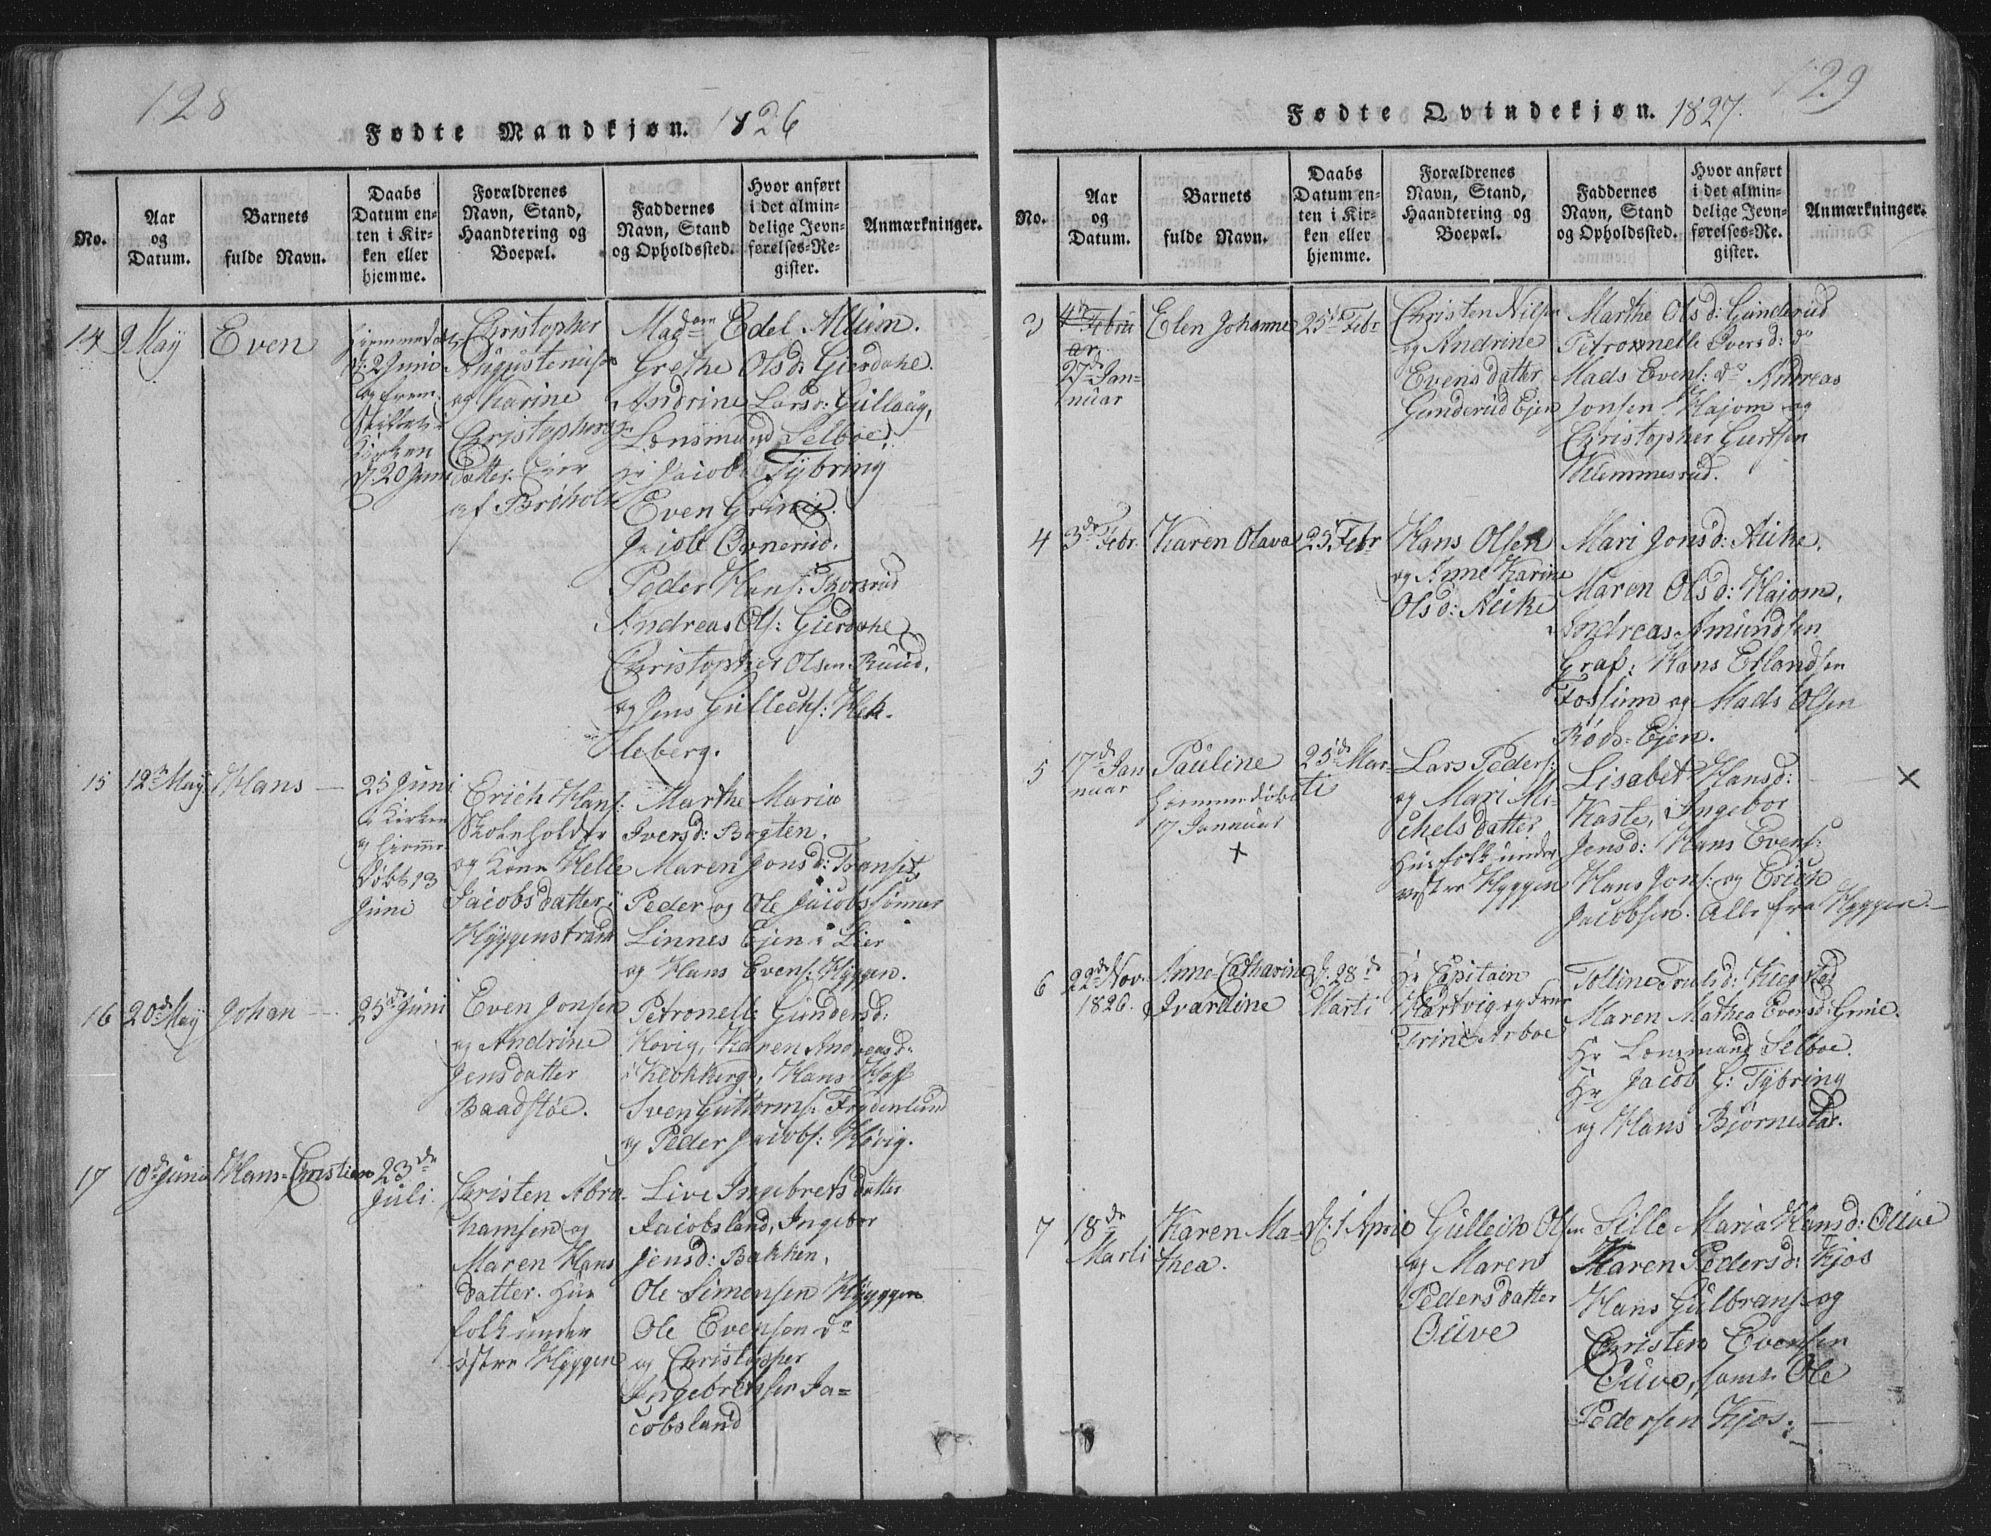 128
Fødte Mandkjøn. 1826
No.
Aar
og
Datum.
Barnets
fulde Navn.
Daabs
Datum en-
ten i Kir-
ken eller
hjemme.
Forældrenes
Navn, Stand,
Haandtering og
Boepæl.
Faddernes
Navn, Stand
og Opholdssted.
Hvor anført
i det almin-
delige Jevn-
førelses-Re-
gister.
Anmærkninger.
14
9 May
Even
d: 2 Juni
og frem-
stillet i
Kirken
d: 20 Juni
Christopher
Augustenussen
og Karine
Christophers
datter. Eier
af Bröholt
Madam Edel Allum.
Grethe Olsd: Gierdahl.
Andrine Larsd: Gullaug,
Lensmand Selboe,
Hr Jacob Tÿbring
Even Grini.
Jacob Ovnerud.
Peder Hans:
Andreas Ols: Gierdahl
Christopher Olsen Ruud,
og Jens Gullechs: Hek-
leberg.
15
12te May
Hans —
25 Juni
i Kirken
og hjemme
döbt 13
Juni
Erich Hans:
Skoleholder
og Kone Helle
Jacobsdatter,
Hÿggenstrand
Marthe Maria
Iversd: Bogten.
Maren Jonsd: Transet,
Peder og Ole Jacobssönner
Linnes Ejen i Lier
og Hans Evens: Hÿggen.
16
20de May
Johan —
25de Juni
Even Jonsen
og Andrine
Jensdatter
Baadstöe.
Petronelle Gundersd:
Hövig, Karen Andersd:
Klokkerg:, Hans Hoff
Sven Guttorms: Frydenlund
og Peder Jacobs: Hövig.
17
10de Juni
Hans Christian
23de
Juli.
Christen Abra-
hamsen og
Maren Hans
datter. Huus
folk under
östre Hÿggen
Live Ingebretsdatter
Jacobsland, Ingebor
Jensd: Bakken,
Ole Simensen Hÿggen
Ole Evensen do
og Christopher
Ingebretsen Ja-
cobsland
129
Fødte Qvindekjøn. 1827.
No.
Aar
og
Datum.
Barnets
fulde Navn.
Daabs
Datum en-
ten i Kir-
ken eller
hjemme.
Forældrenes
Navn, Stand,
Haandtering og
Boepæl.
Faddernes
Navn, Stand
og Opholdssted.
Hvor anført
i det almin-
delige Jevn-
førelses-Re-
gister.
Anmærkninger.
3
4de Febru
ar.
27de Jan-
nuar
Elen Johanne
25de Febr
Christen Nilsen
og Andrine
Evensdatter
Gunderud Ejen
Marthe Olsd: Gunderud
Petronnelle Iversd: do
Mads Evens: do Andreas
Jonsen Hajom og
Christopher Gurtsen
Kummesrud.
4
3de Febr.
Karen Olava
25 Febr
Hans Olsen
og Anne Karine
Olsd: Auke
Mari Jonsd: Auke.
Maren Olsd: Hajom,
Andreas Amundsen
Graf: Hans Erlandsen
Fossum og Mads Olsen
Röds-Ejen.
5
17de Jan
nuar
Pauline
hjemmedöbt
17 Jannuar
x
25de Mar-
ti
Lars Peders:
og Mari Mi-
chelsdatter
Husfolk under
vestre Hyggen
Lisabet Hansd:
Kaste, Ingebor
Jensd: Hans Evens:
Hans Jons: og Erich
Jacobsen. Alle fra Hyggen. —
x
6
22de Nov.
1826.
Anne Catharine
Ivardine
d: 28de
Marti
Hr Capitain
Hartvig og Frue
Trine Arboe
Tolline Trulsd: Kiegstad
Maren Mathea Eversd: Grine.
Hr Lensmand Selboe.
Hr Jacob G: Tÿbring
og Hans Björnestad.
7
18de
Marti
Karen Ma-
thea.
d: 1 April
Gulleich Olsen
og Maren
Pedersdatter
Ouve
Sille Maria Hansd: Ouve
Karen Pedersd: Kjos
Hans Gulbrans: og
Christen Evensen
Ouve, samt Ole
Pedersen Kjos: —